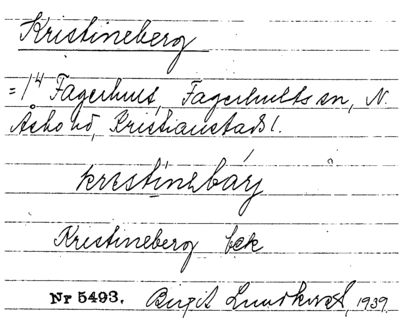 Kristineberg
= 1/4 Fagerhult, Fagerhults sn, N.
Åsbo hd, Kristianstads l.
Kristineberg bek
Nr 5493. Birgit Lundkvist, 1939.